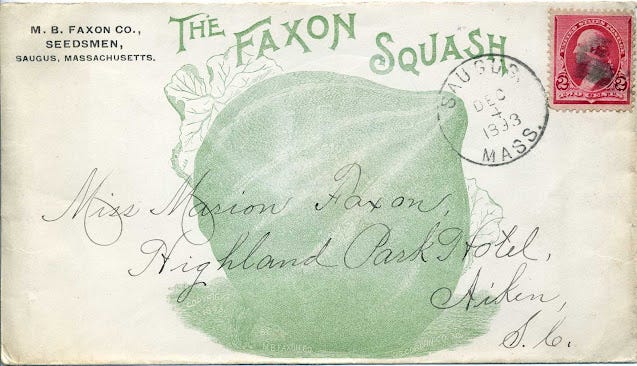 M. B. FAXON CO.,
SEEDSMEN,
SAUGUS, MASSACHUSETTS.
THE FAXON SQUASH
SAUGUS,
DEC
7
1893
MASS.
UNITED STATES POSTAGE
2 2
TWO CENTS
Miss Marion Faxon,
Highland Park Hotel,
Aiken,
S. C.
COPYRIGHT
M.B. FAXON CO.